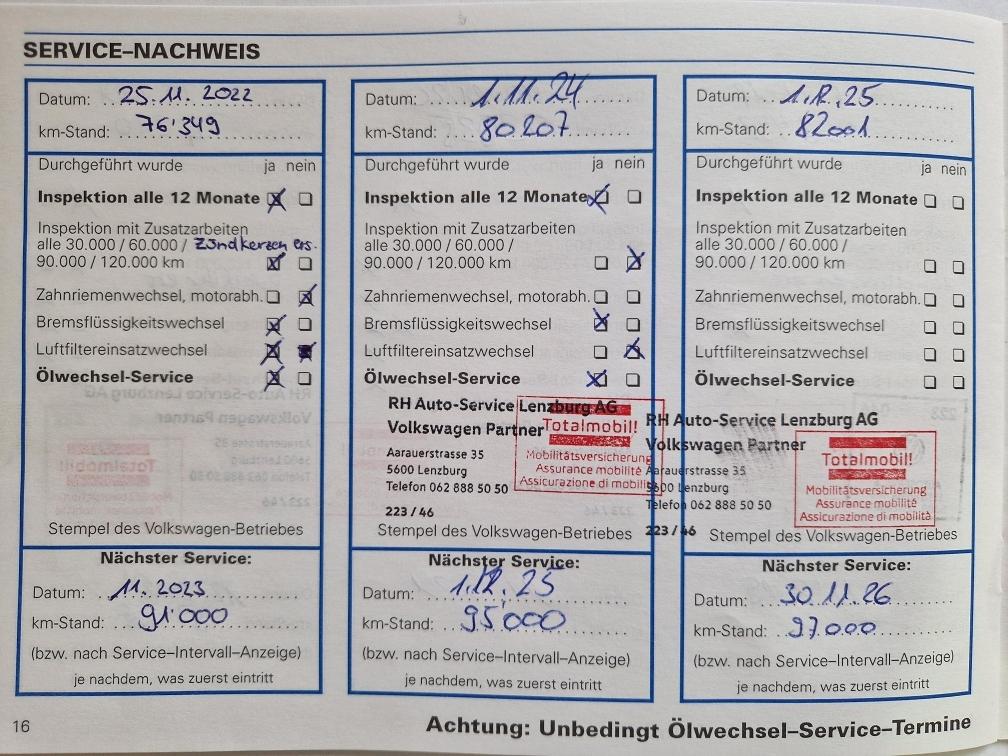 SERVICE–NACHWEIS
Datum: 25.11.2022
km-Stand: 76'349
Durchgeführt wurde ja nein
Inspektion alle 12 Monate
Inspektion mit Zusatzarbeiten
alle 30.000 / 60.000 / Zündkerzen ers.
90.000 / 120.000 km
Zahnriemenwechsel, motorabh.
Bremsflüssigkeitswechsel
Luftfiltereinsatzwechsel
Ölwechsel-Service
Stempel des Volkswagen-Betriebes
Nächster Service:
Datum: 11.2023
km-Stand: 91'000
(bzw. nach Service–Intervall–Anzeige)
je nachdem, was zuerst eintritt
Datum: 1.11.24
km-Stand: 80207
Durchgeführt wurde ja nein
Inspektion alle 12 Monate
Inspektion mit Zusatzarbeiten
alle 30.000 / 60.000 /
90.000 / 120.000 km
Zahnriemenwechsel, motorabh.
Bremsflüssigkeitswechsel
Luftfiltereinsatzwechsel
Ölwechsel-Service
RH Auto-Service Lenzburg AG
Volkswagen Partner
Aarauerstrasse 35
5600 Lenzburg
Telefon 062 888 50 50
223 / 46
Totalmobil!
Mobilitätsversicherung
Assurance mobilité
Assicurazione di mobilità
Stempel des Volkswagen-Betriebes
Nächster Service:
Datum: 1.12.25
km-Stand: 95'000
(bzw. nach Service–Intervall–Anzeige)
je nachdem, was zuerst eintritt
Datum: 1.12.25
km-Stand: 82001
Durchgeführt wurde ja nein
Inspektion alle 12 Monate
Inspektion mit Zusatzarbeiten
alle 30.000 / 60.000 /
90.000 / 120.000 km
Zahnriemenwechsel, motorabh.
Bremsflüssigkeitswechsel
Luftfiltereinsatzwechsel
Ölwechsel-Service
RH Auto-Service Lenzburg AG
Volkswagen Partner
Aarauerstrasse 35
5600 Lenzburg
Telefon 062 888 50 50
223 / 46
Totalmobil!
Mobilitätsversicherung
Assurance mobilité
Assicurazione di mobilità
Stempel des Volkswagen-Betriebes
Nächster Service:
Datum: 30.11.26
km-Stand: 97.000
(bzw. nach Service–Intervall–Anzeige)
je nachdem, was zuerst eintritt
16
Achtung: Unbedingt Ölwechsel–Service–Termine